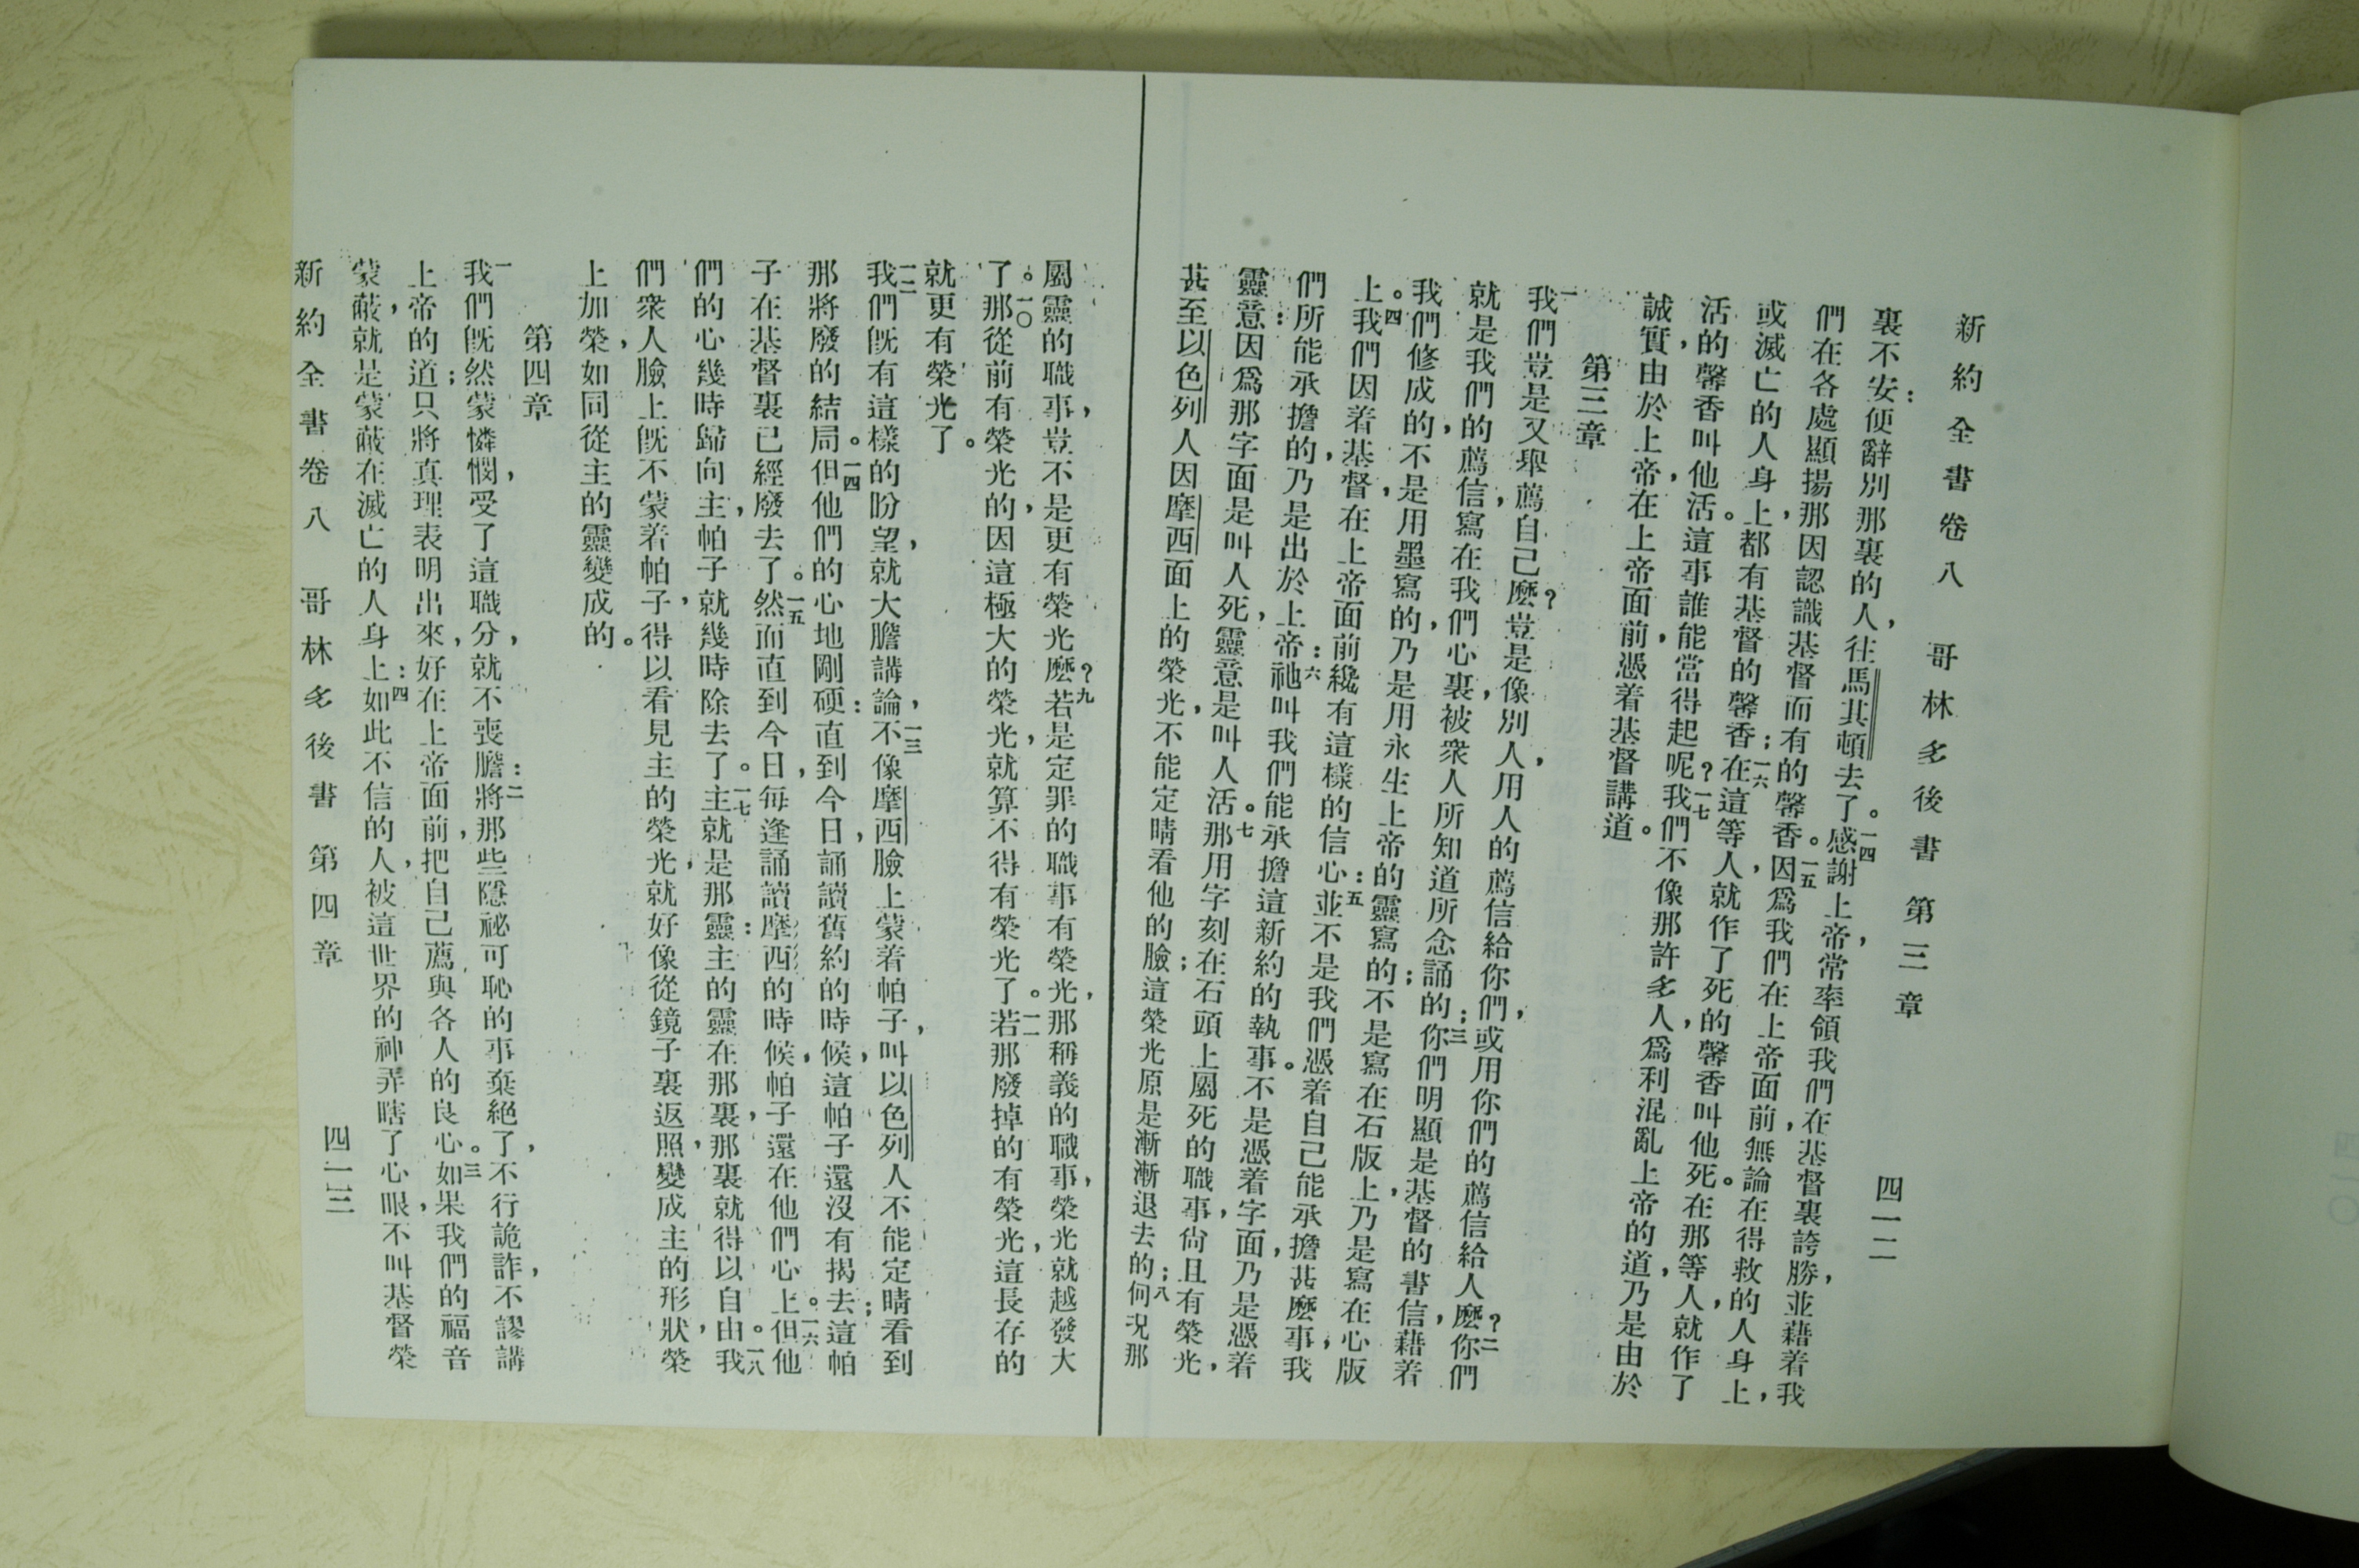 新約全書卷八 哥林多後書 第三章 四一二
裏不安:便辭別那裏的人,往馬其頓去了。一四感謝上帝,常率領我們在基督裏誇勝,並藉着我
們在各處顯揚那因認識基督而有的馨香。一五因爲我們在上帝面前,無論在得救的人身上,
或滅亡的人身上,都有基督的馨香;一六在這等人,就作了死的馨香叫他死。在那等人,就作了
活的馨香叫他活。這事誰能當得起呢?一七我們不像那許多人,爲利混亂上帝的道,乃是由於
誠實,由於上帝,在上帝面前,憑着基督講道。
第三章
一我們豈是又舉薦自己麽?豈是像別人,用人的薦信給你們,或用你們的薦信給人麽?二你們
就是我們的薦信,寫在我們心裏,被衆人所知道所念誦的;三你們明顯是基督的書信,藉着
我們修成的,不是用墨寫的,乃是用永生上帝的靈寫的;不是寫在石版上,乃是寫在心版
上。四我們因着基督,在上帝面前纔有這樣的信心:五並不是我們憑着自己能承擔甚麽事,我
們所能承擔的,乃是出於上帝:六祂叫我們能承擔這新約的執事。不是憑着字面,乃是憑着
靈意:因爲那字面是叫人死,靈意是叫人活。七那用字刻在石頭上屬死的職事,尙且有榮光,
甚至以色列人因摩西面上的榮光,不能定睛看他的臉;這榮光原是漸漸退去的;八何況那
屬靈的職事,豈不是更有榮光麽?九若是定罪的職事有榮光,那稱義的職事,榮光就越發大
了。一〇那從前有榮光的,因這極大的榮光,就算不得有榮光了。一一若那廢掉的有榮光,這長存的
就更有榮光了。
一二我們旣有這樣的盼望,就大膽講論,一三不像摩西臉上蒙着帕子,叫以色列人不能定睛看到
那將廢的結局。一四但他們的心地剛硬:直到今日,誦讀舊約的時候,這帕子還沒有揭去;這帕
子在基督裏已經廢去了。一五然而直到今日,每逢誦讀摩西的時候,帕子還在他們心上。一六但他
們的心幾時歸向主,帕子就幾時除去了。一七主就是那靈:主的靈在那裏,那裏就得以自由。一八我
們衆人臉上旣不蒙着帕子,得以看見主的榮光,就好像從鏡子裏返照,變成主的形狀,榮
上加榮,如同從主的靈變成的。
第四章
一我們旣然蒙憐憫,受了這職分,就不喪膽:二將那些隱祕可恥的事棄絕了,不行詭詐,不謬講
上帝的道;只將真理表明出來,好在上帝面前,把自己薦與各人的良心。三如果我們的福音
蒙蔽,就是蒙蔽在滅亡的人身上:四如此不信的人,被這世界的神弄瞎了心眼,不叫基督榮
新約全書卷八 哥林多後書 第四章 四一三